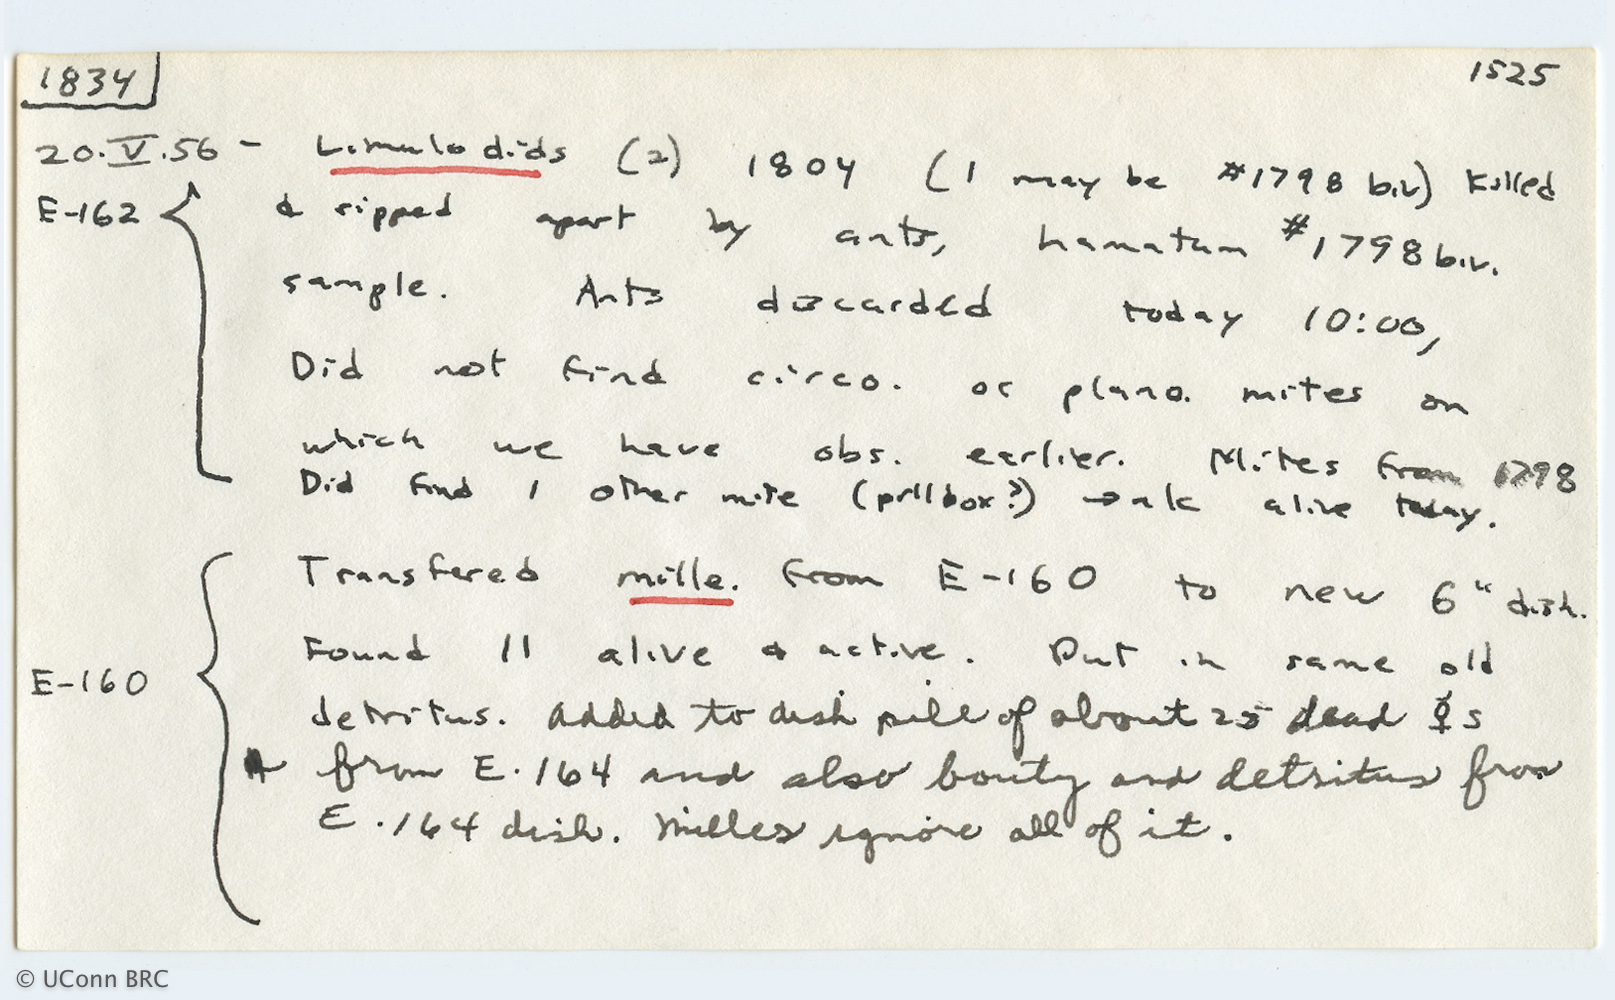 1834
1525
20.V.56 - Limulodids (2) 1804 (1 may be #1798 biv) Killed
E-162
& ripped apart by ants, hamatum #1798 biv.
sample. Ants discarded today 10:00,
Did not find circo. or plano. mites on
which we have obs. earlier. Mites from 1798
Did find 1 other mite (pillbox?) → alc alive today.
Transfered mille. from E-160 to new 6" dish.
Found 11 alive & active. Put in same old
E-160
detritus. Added to dish pile of about 25 dead ☿s
from E.164 and also booty and detritus from
E.164 dish. Milles ignore all of it.
© UConn BRC